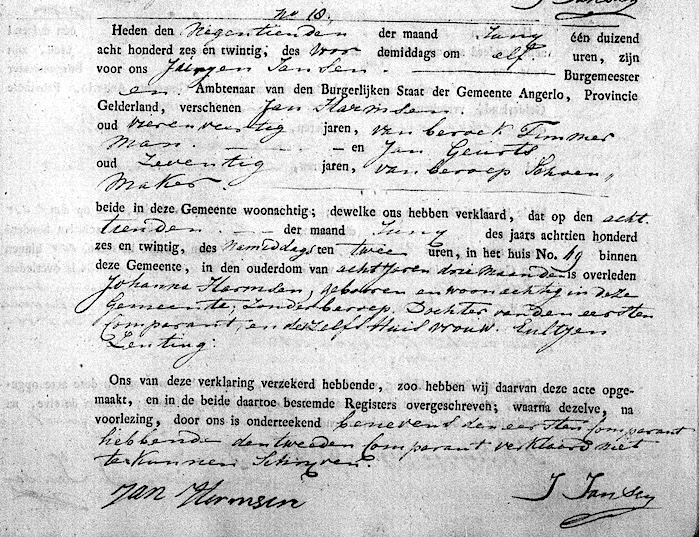 No 18.
Heden den Negentienden der maand Juny één duizend
acht honderd zes én twintig, des voor demiddags om elf uren, zijn
voor ons Jurgen Jansen. Burgemeester
en Ambtenaar van den Burgerlijken Staat der Gemeente Angerlo, Provincie
Gelderland, verschenen Jan Harmsen
oud vierenveertig jaren, van beroep Timmer
Man. — en Jan Geurts
oud Zeventig jaren, van beroep Schoen„
Maker.
beide in deze Gemeente woonachtig; dewelke ons hebben verklaard, dat op den acht.
tienden. der maand Juny des jaars achttien honderd
zes en twintig, des Nameddags ten twee uren, in het huis No. 49 binnen
deze Gemeente, in den ouderdom van acht Jaren drie Maanden is overleden
Johanna Harmsen, gebooren en woonachtig in deze
Gemeente, zonder beroep. Dochter van den eersten
Comparant, en deszelfs Huisvrouw. Eultjen
Lenting.
Ons van deze verklaring verzekerd hebbende, zoo hebben wij daarvan deze acte opge-
maakt, en in de beide daartoe bestemde Registers overgeschreven; waarna dezelve, na
voorlezing, door ons is onderteekend benevens den eersten Comparant
hebbende den tweeden Comparant verklaard niet
te kunnen Schryven.
Jan Hermsen J Jansen